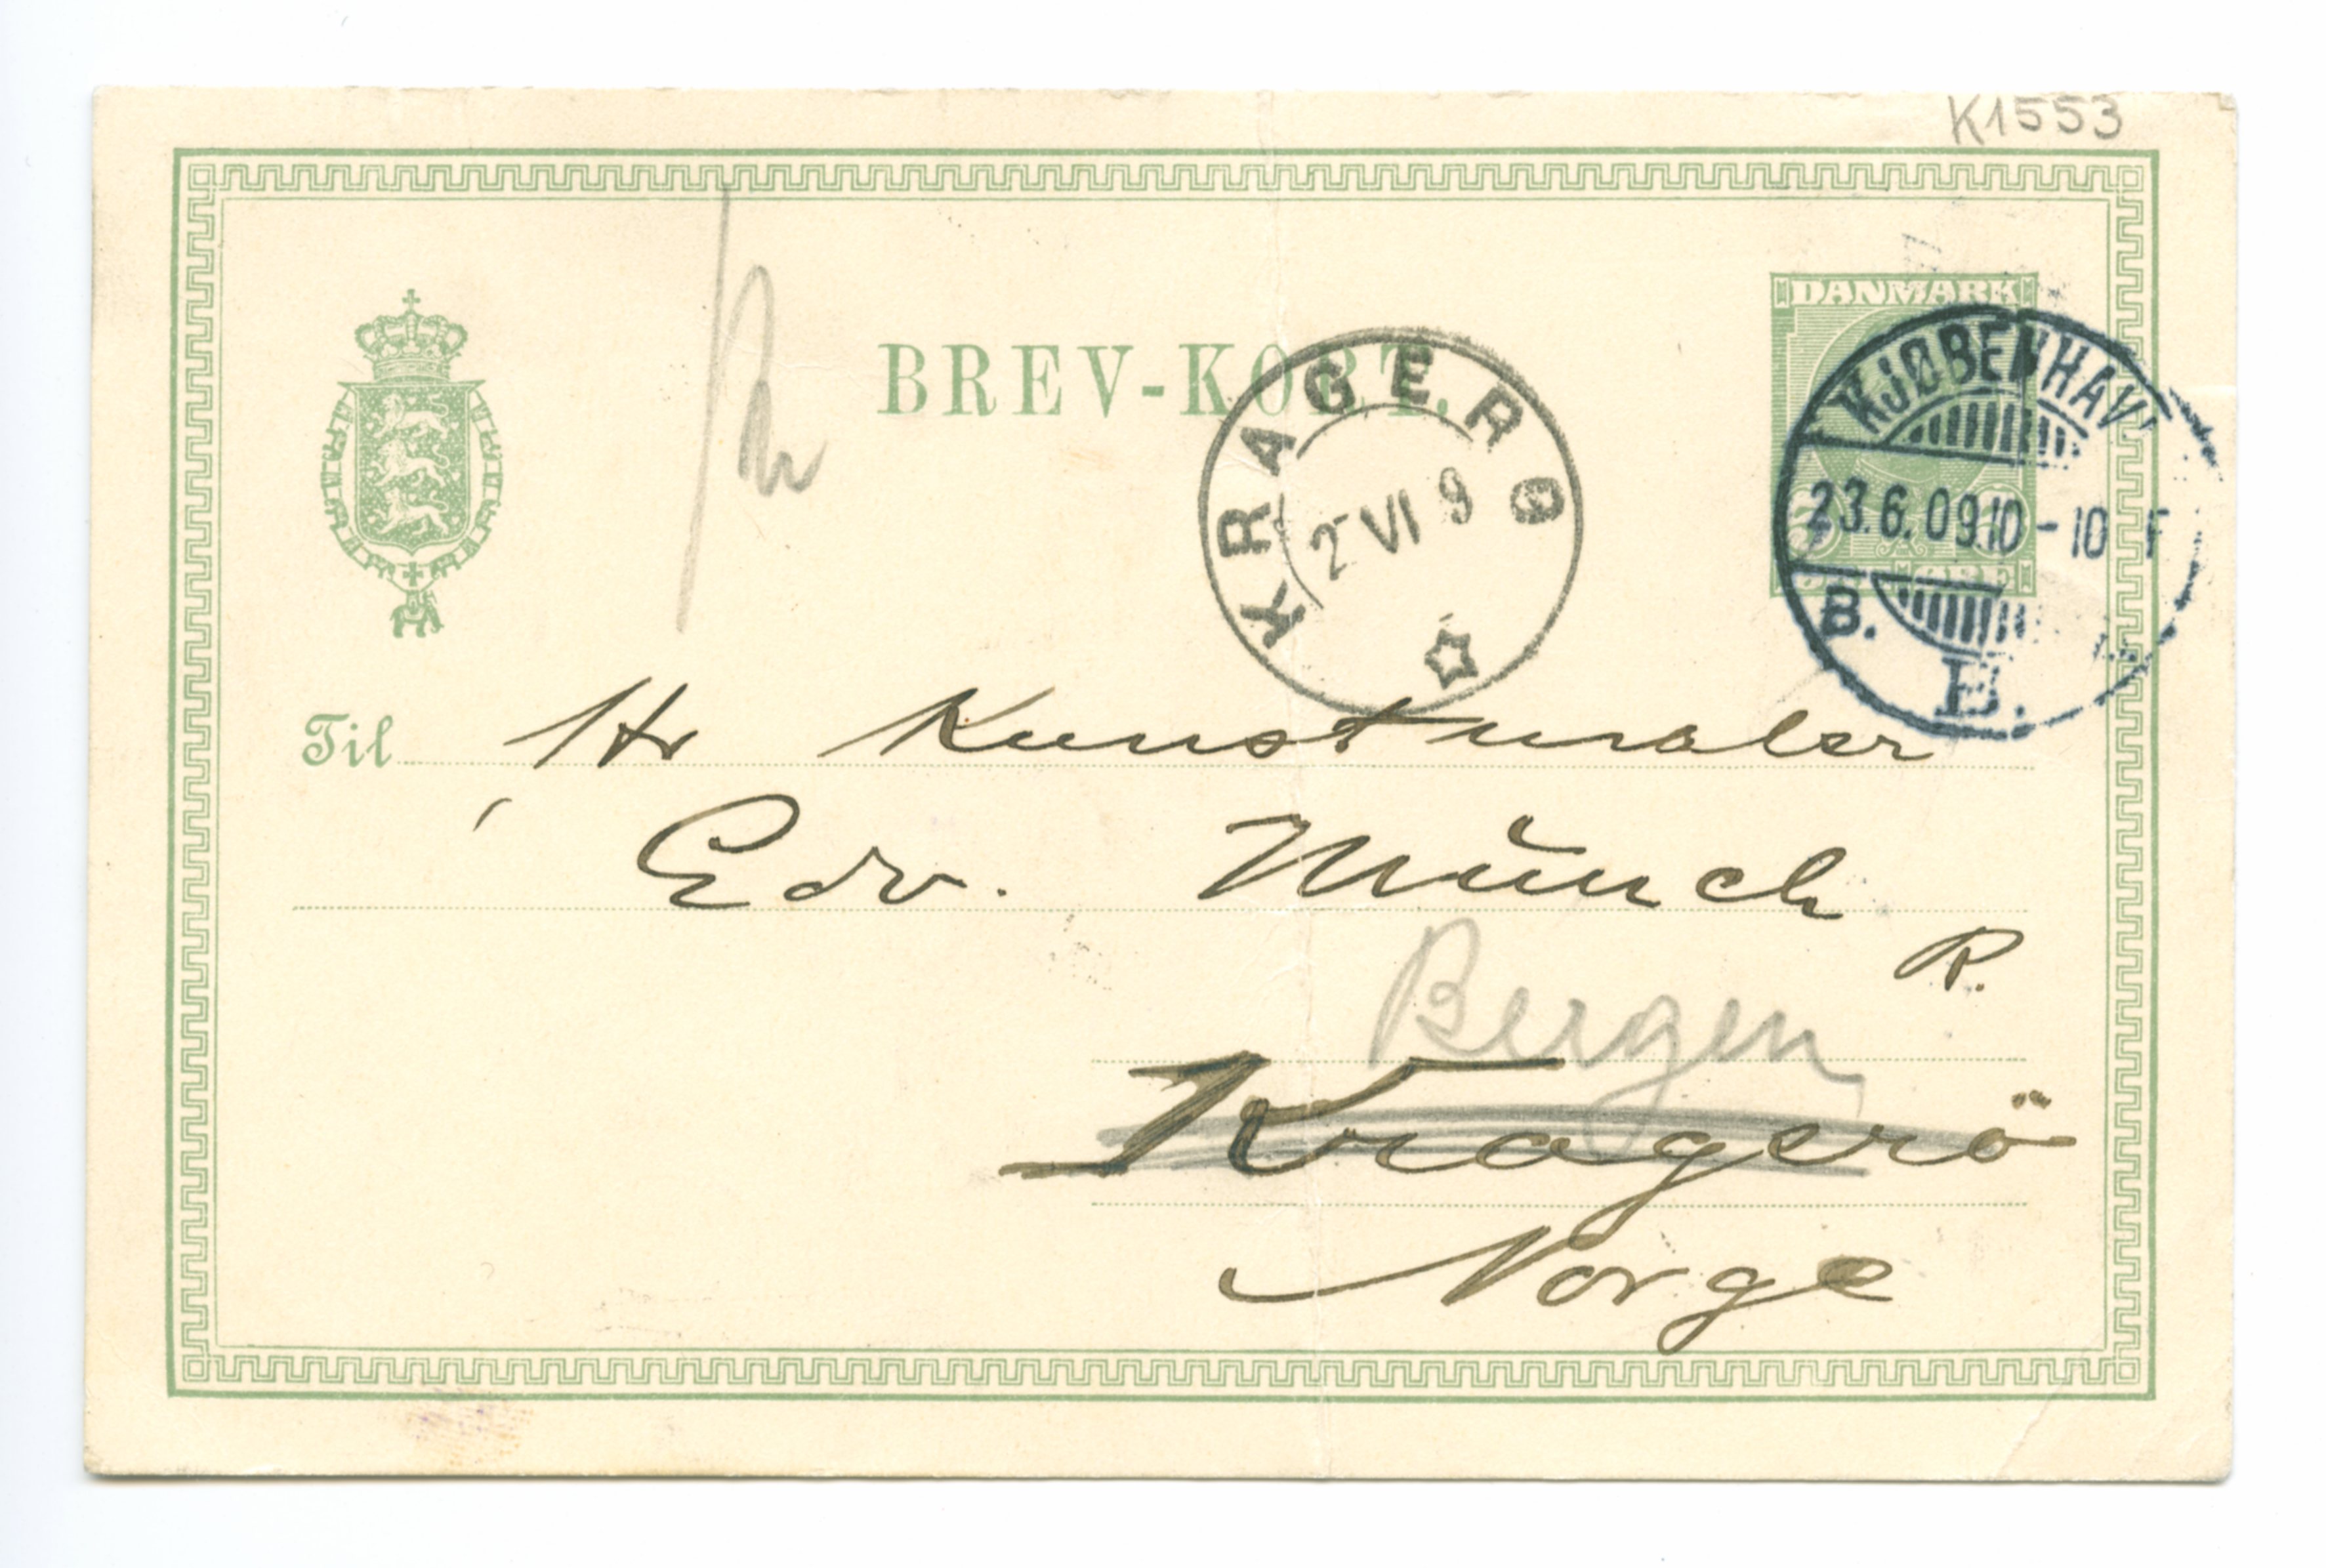 K1553
BREV-KORT.
DANMARK
KRAGERØ
2 VI 9
KJØBENHAV
23.6.09.10-10 F
B.
B.
Til Hr Kunstmaler
Edv. Münch
R.
Bergen
Kragerö
Norge